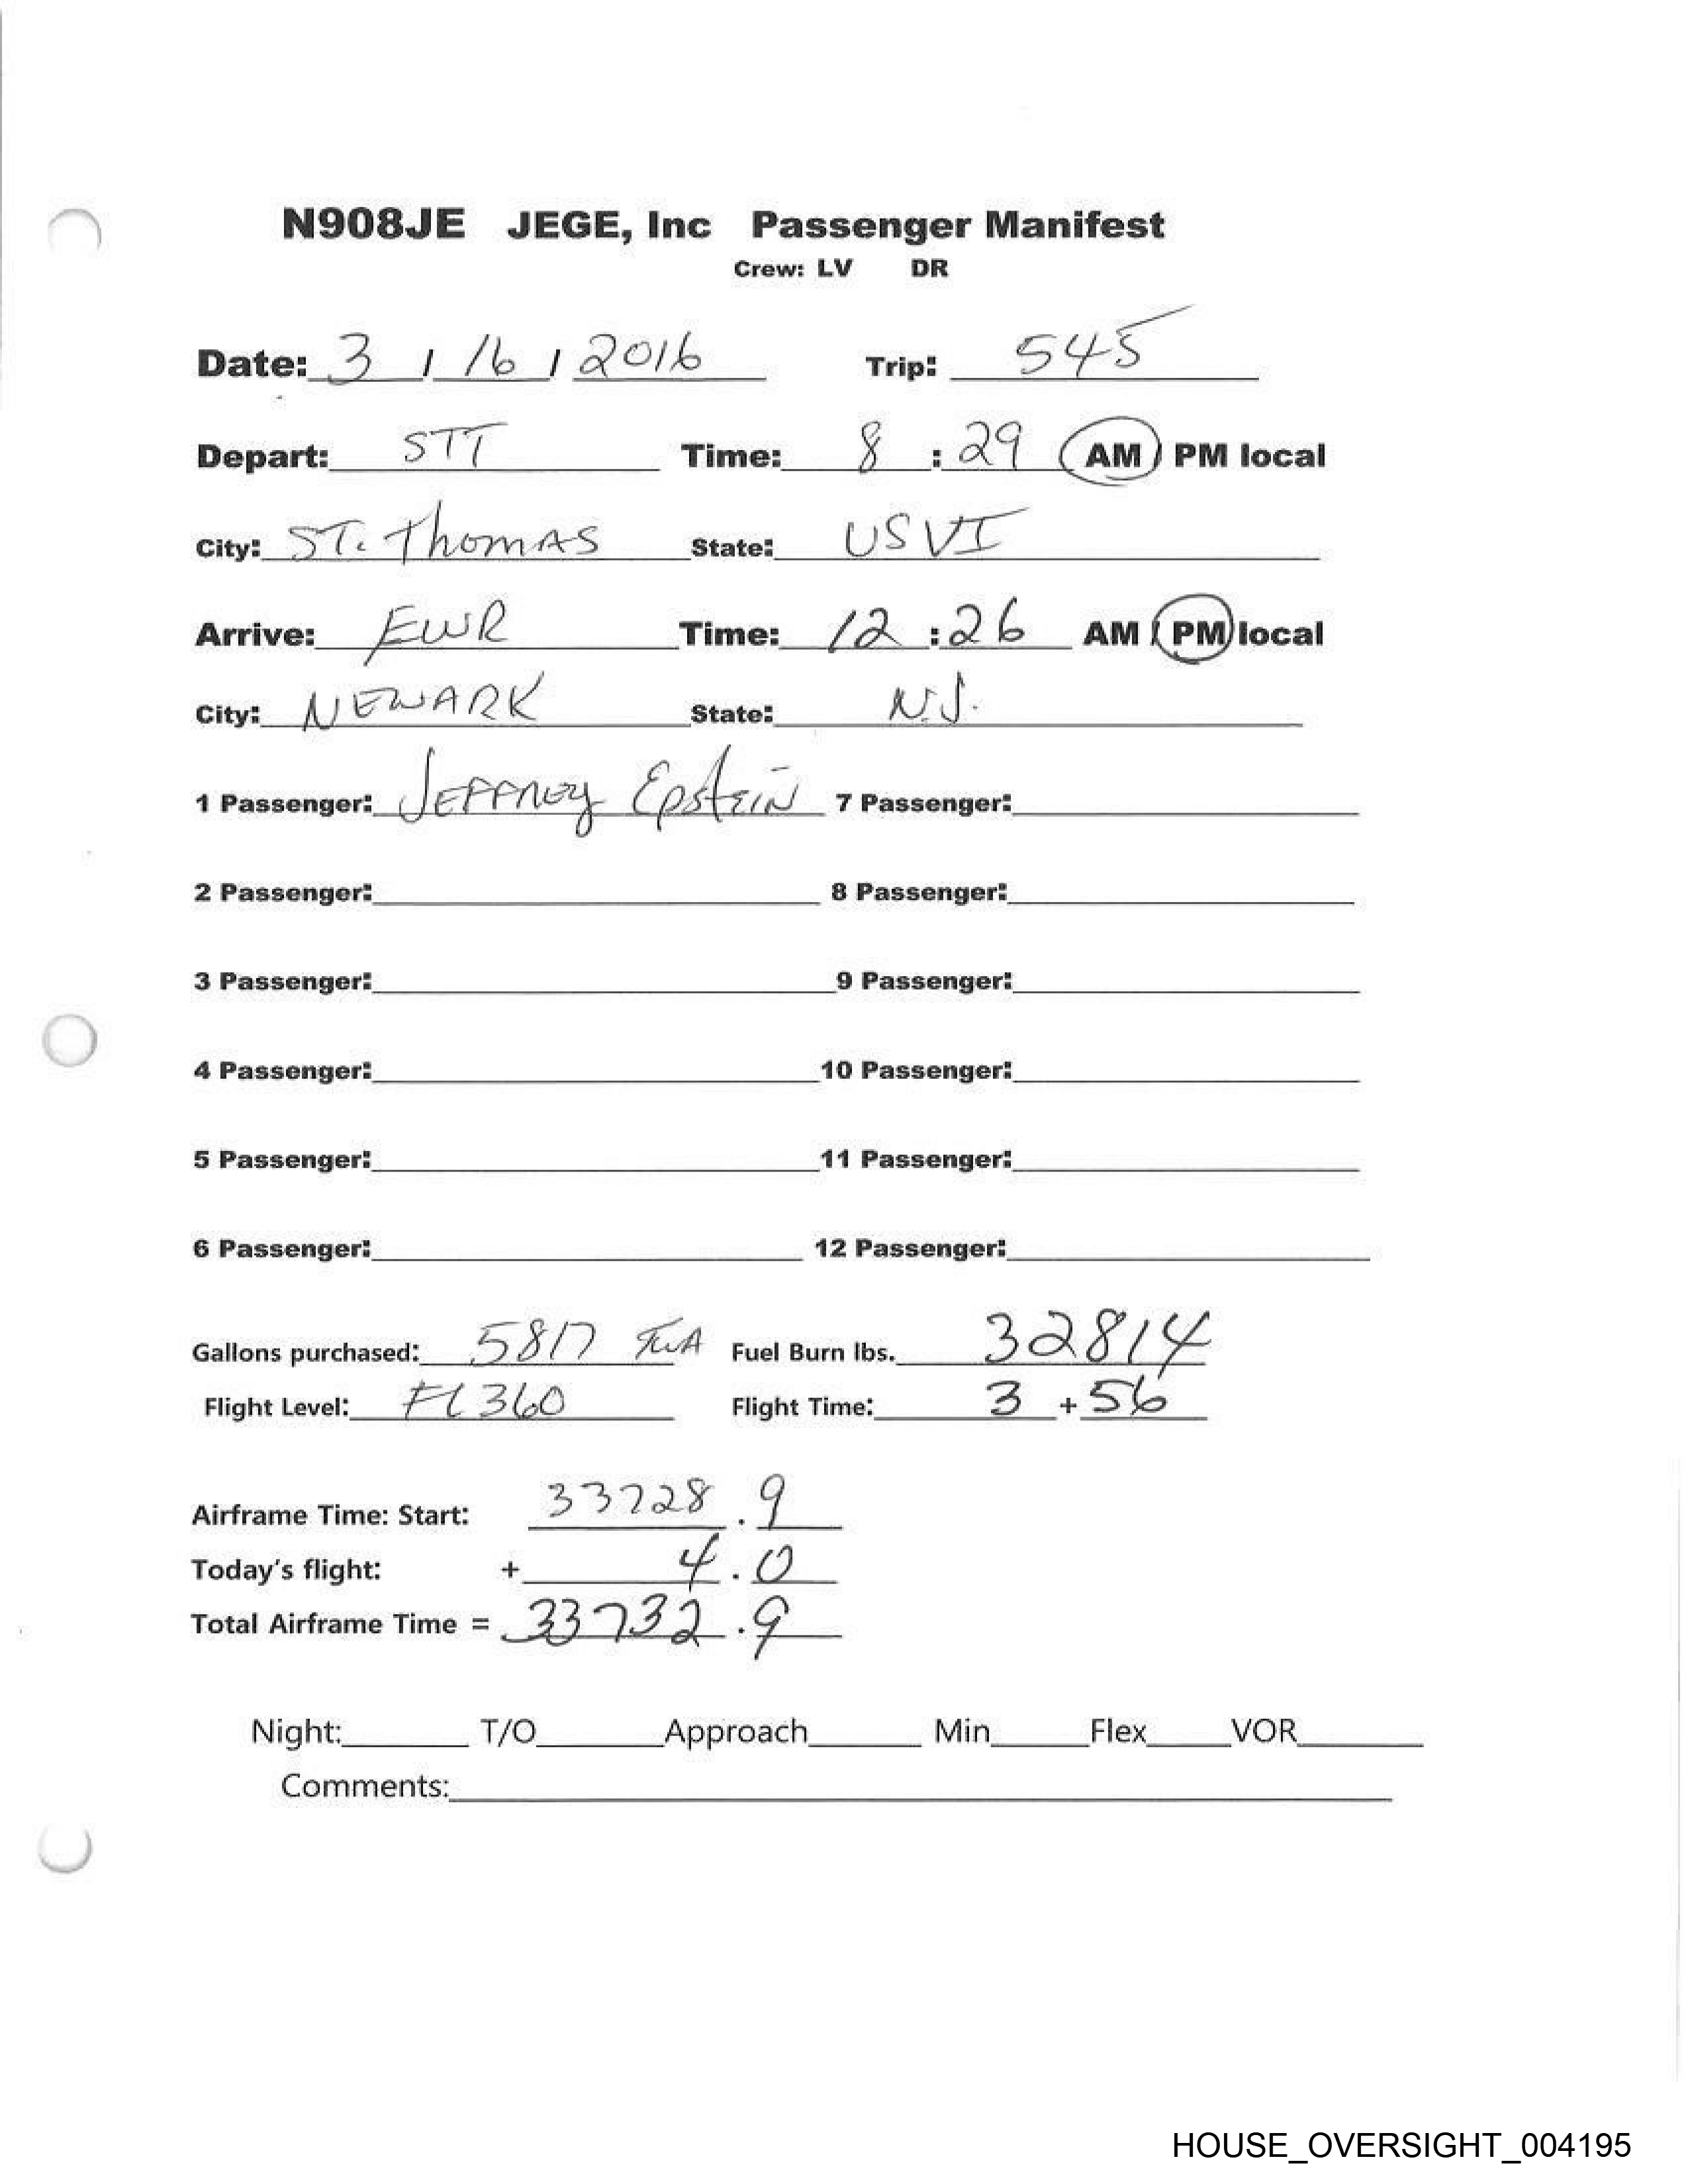 N908JE JEGE, Inc Passenger Manifest
Crew: LV DR
Date: 3 / 16 / 2016 Trip: 545
Depart: STT Time: 8 : 29 AM / PM local
City: ST. Thomas State: USVI
Arrive: EWR Time: 12 : 26 AM / PM local
City: NEWARK State: N.J.
1 Passenger: Jeffrey Epstein 7 Passenger:
2 Passenger: 8 Passenger:
3 Passenger: 9 Passenger:
4 Passenger: 10 Passenger:
5 Passenger: 11 Passenger:
6 Passenger: 12 Passenger:
Gallons purchased: 5817 Fuel Burn lbs. 32814
Flight Level: FL360 Flight Time: 3 + 56
Airframe Time: Start: 33728 . 9
Today's flight: + 4 . 0
Total Airframe Time = 33732 . 9
Night: T/O Approach Min Flex VOR
Comments:
HOUSE_OVERSIGHT_004195